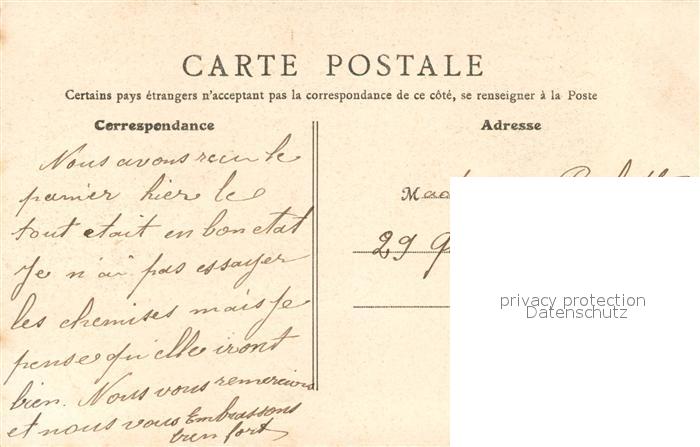 CARTE POSTALE
Certains pays étrangers n'acceptant pas la correspondance de ce côté, se renseigner à la Poste
Correspondance
Nous avons recu le
panier hier le
tout etait en bon etat
Je n'ai pas essayer
les chemises mais je
pense qu'elle iront
bien. Nous vous remercions
et nous vous Embrassons
bien fort
Adresse
29
privacy protection
Datenschutz